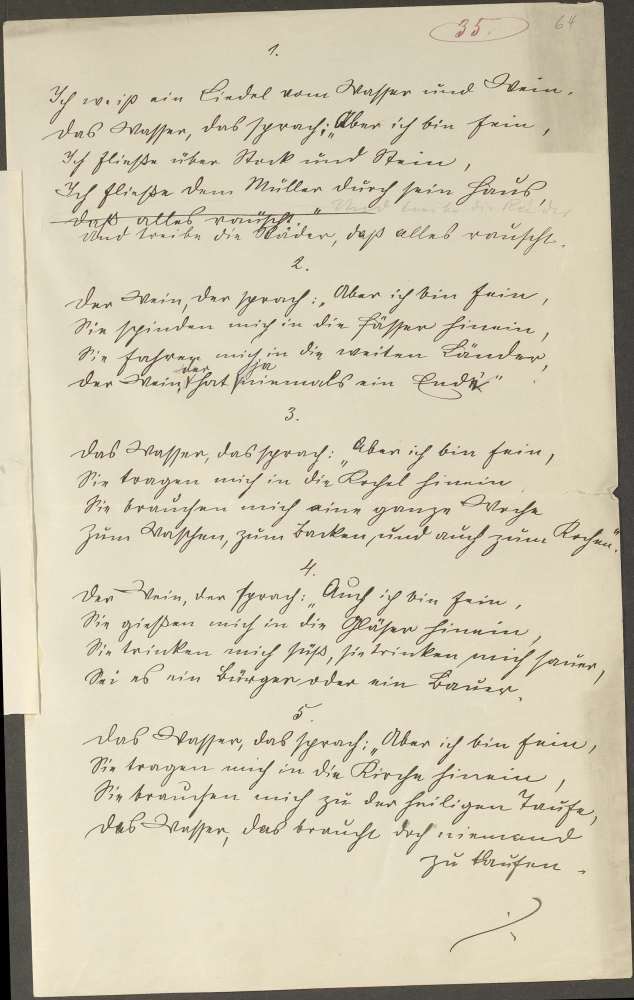 35.
64
1.
Ich weiß ein Liedel vom Wasser und Wein.
Das Wasser, das sprach: „Aber ich bin fein,
Ich fließe über Stock und Stein,
Ich fließe dem Müller durch sein Haus,
daß alles rauscht." Und treibe die Räder
Und treibe die Räder, daß alles rauscht.
2.
Der Wein, der sprach: „Aber ich bin fein,
Sie spinden mich in die Fässer hinein,
Sie fahren mich in die weiten Länder,
Der Wein, der hat ja niemals ein End"
3.
Das Wasser, das sprach: „Aber ich bin fein,
Sie tragen mich in die Kochel hinein
Sie brauchen mich eine ganze Woche
Zum Waschen, zum Backen, und auch zum Kochen."
4.
Der Wein, der sprach: „Auch ich bin fein,
Sie gießen mich in die Gläser hinein,
Sie trinken mich süß, sie trinken mich sauer,
Sei es ein Bürger oder ein Bauer.
5.
Das Wasser, das sprach: „Aber ich bin fein,
Sie tragen mich in die Kirche hinein,
Sie brauchen mich zu der heiligen Taufe,
Das Wasser, das braucht doch niemand
zu kaufen.